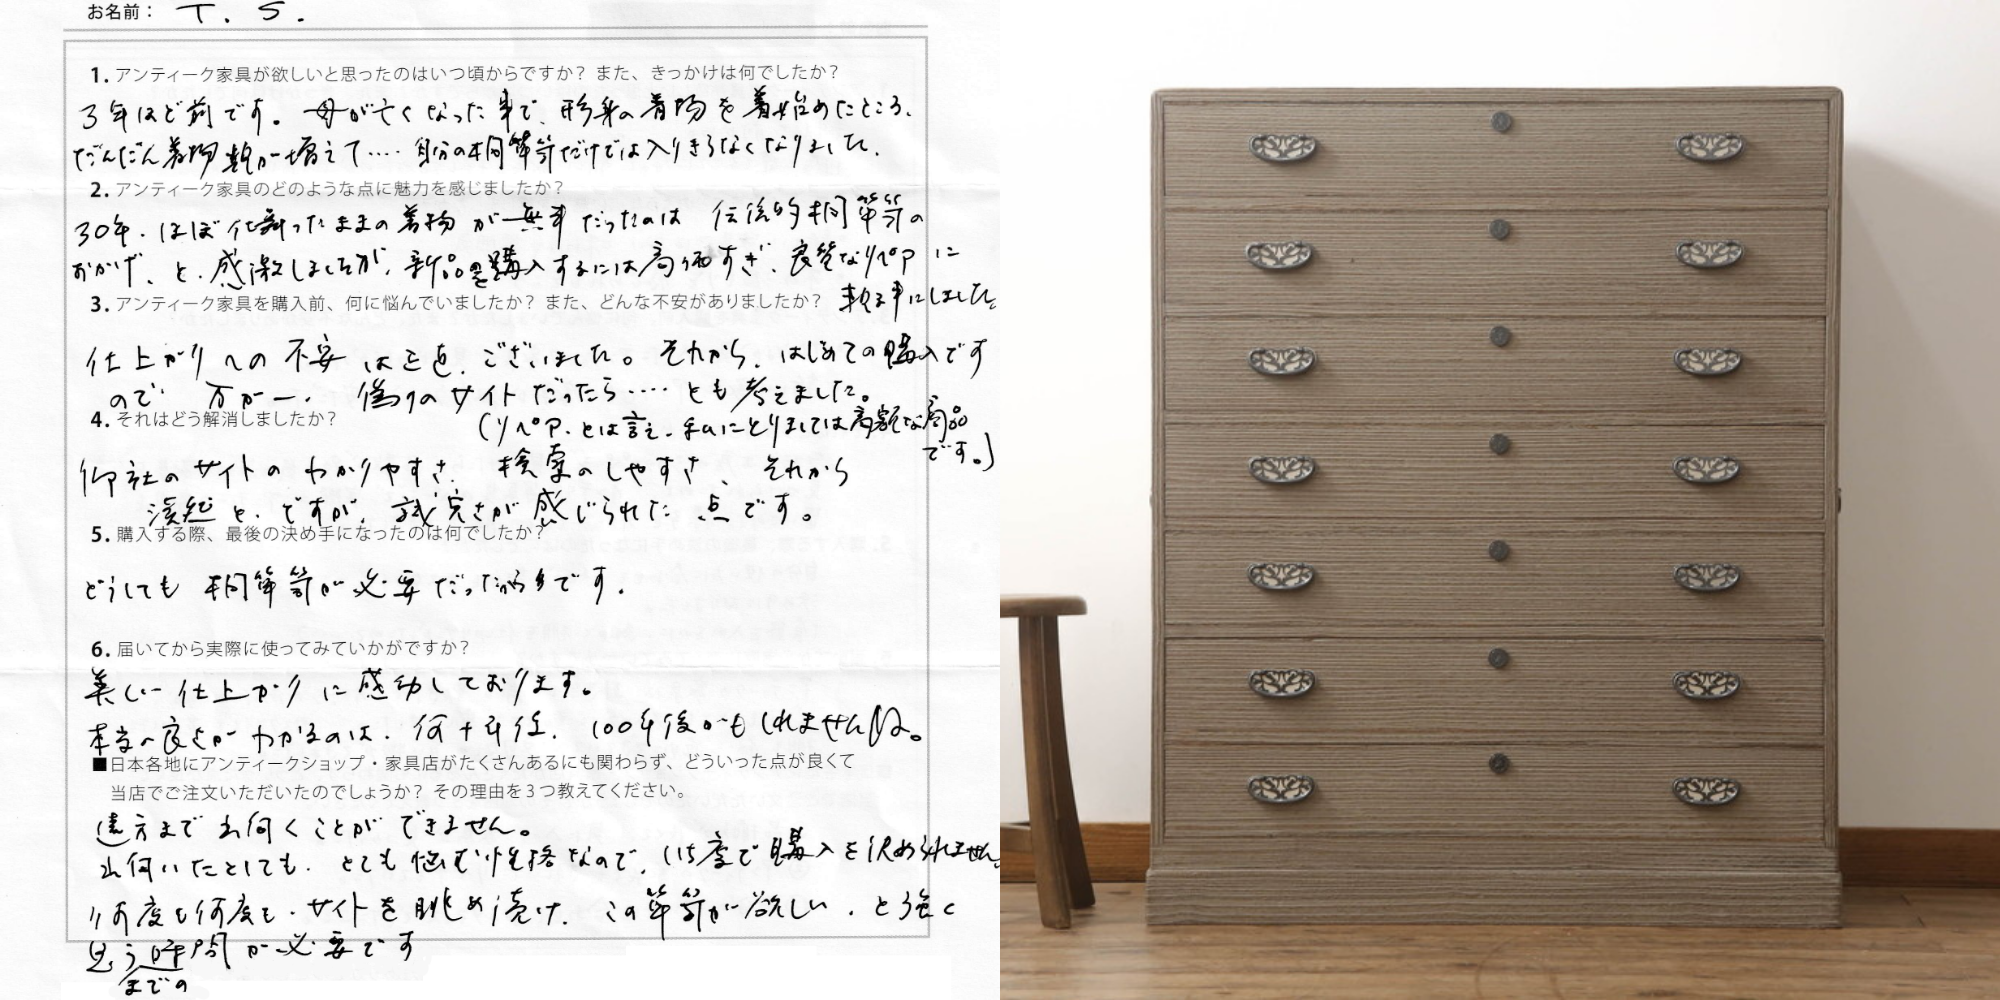 お名前： T. S.
1. アンティーク家具が欲しいと思ったのはいつ頃からですか？ また、きっかけは何でしたか？
3年ほど前です。母が亡くなった事で、形身の着物を着始めたところ、
だんだん着物熱が増えて‥‥自分の桐箪笥だけでは入りきらなくなりました。
2. アンティーク家具のどのような点に魅力を感じましたか？
30年、ほぼ仕舞ったままの着物が無事だったのは 伝統的桐箪笥の
おかげ、と、感激しましたが、新品を購入するには高価すぎ、良質なリペアに
頼る事にしました。
3. アンティーク家具を購入前、何に悩んでいましたか？ また、どんな不安がありましたか？
仕上がりへの不安は正直、ございました。それから、はじめての購入です
ので、万が一、偽りのサイトだったら‥‥とも考えました。
(リペア、とは言え、私にとりましては高額な商品
です。)
4. それはどう解消しましたか？
御社のサイトのわかりやすさ、検索のしやすさ、それから
漠然と、ですが、誠実さが感じられた点です。
5. 購入する際、最後の決め手になったのは何でしたか？
どうしても桐箪笥が必要だったからです。
6. 届いてから実際に使ってみていかがですか？
美しい仕上がりに感動しております。
本当の良さがわかるのは、何十年後、100年後かもしれませんね。
■日本各地にアンティークショップ・家具店がたくさんあるにも関わらず、どういった点が良くて
当店でご注文いただいたのでしょうか？ その理由を3つ教えてください。
遠方まで出向くことができません。
出向いたとしても、とても悩む性格なので、1、5度で購入を決められません。
何度も何度も、サイトを眺め続け、この箪笥が欲しい、と強く
思うまでの時間が必要です